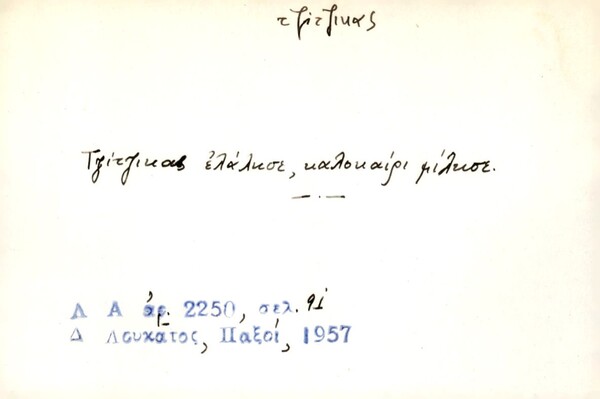 τζίτζικας
Τζίτζικας ἐλάλησε, καλοκαίρι μίλησε.
Λ Α ἀρ. 2250, σελ. 91
Δ Λουκάτος, Παξοί, 1957